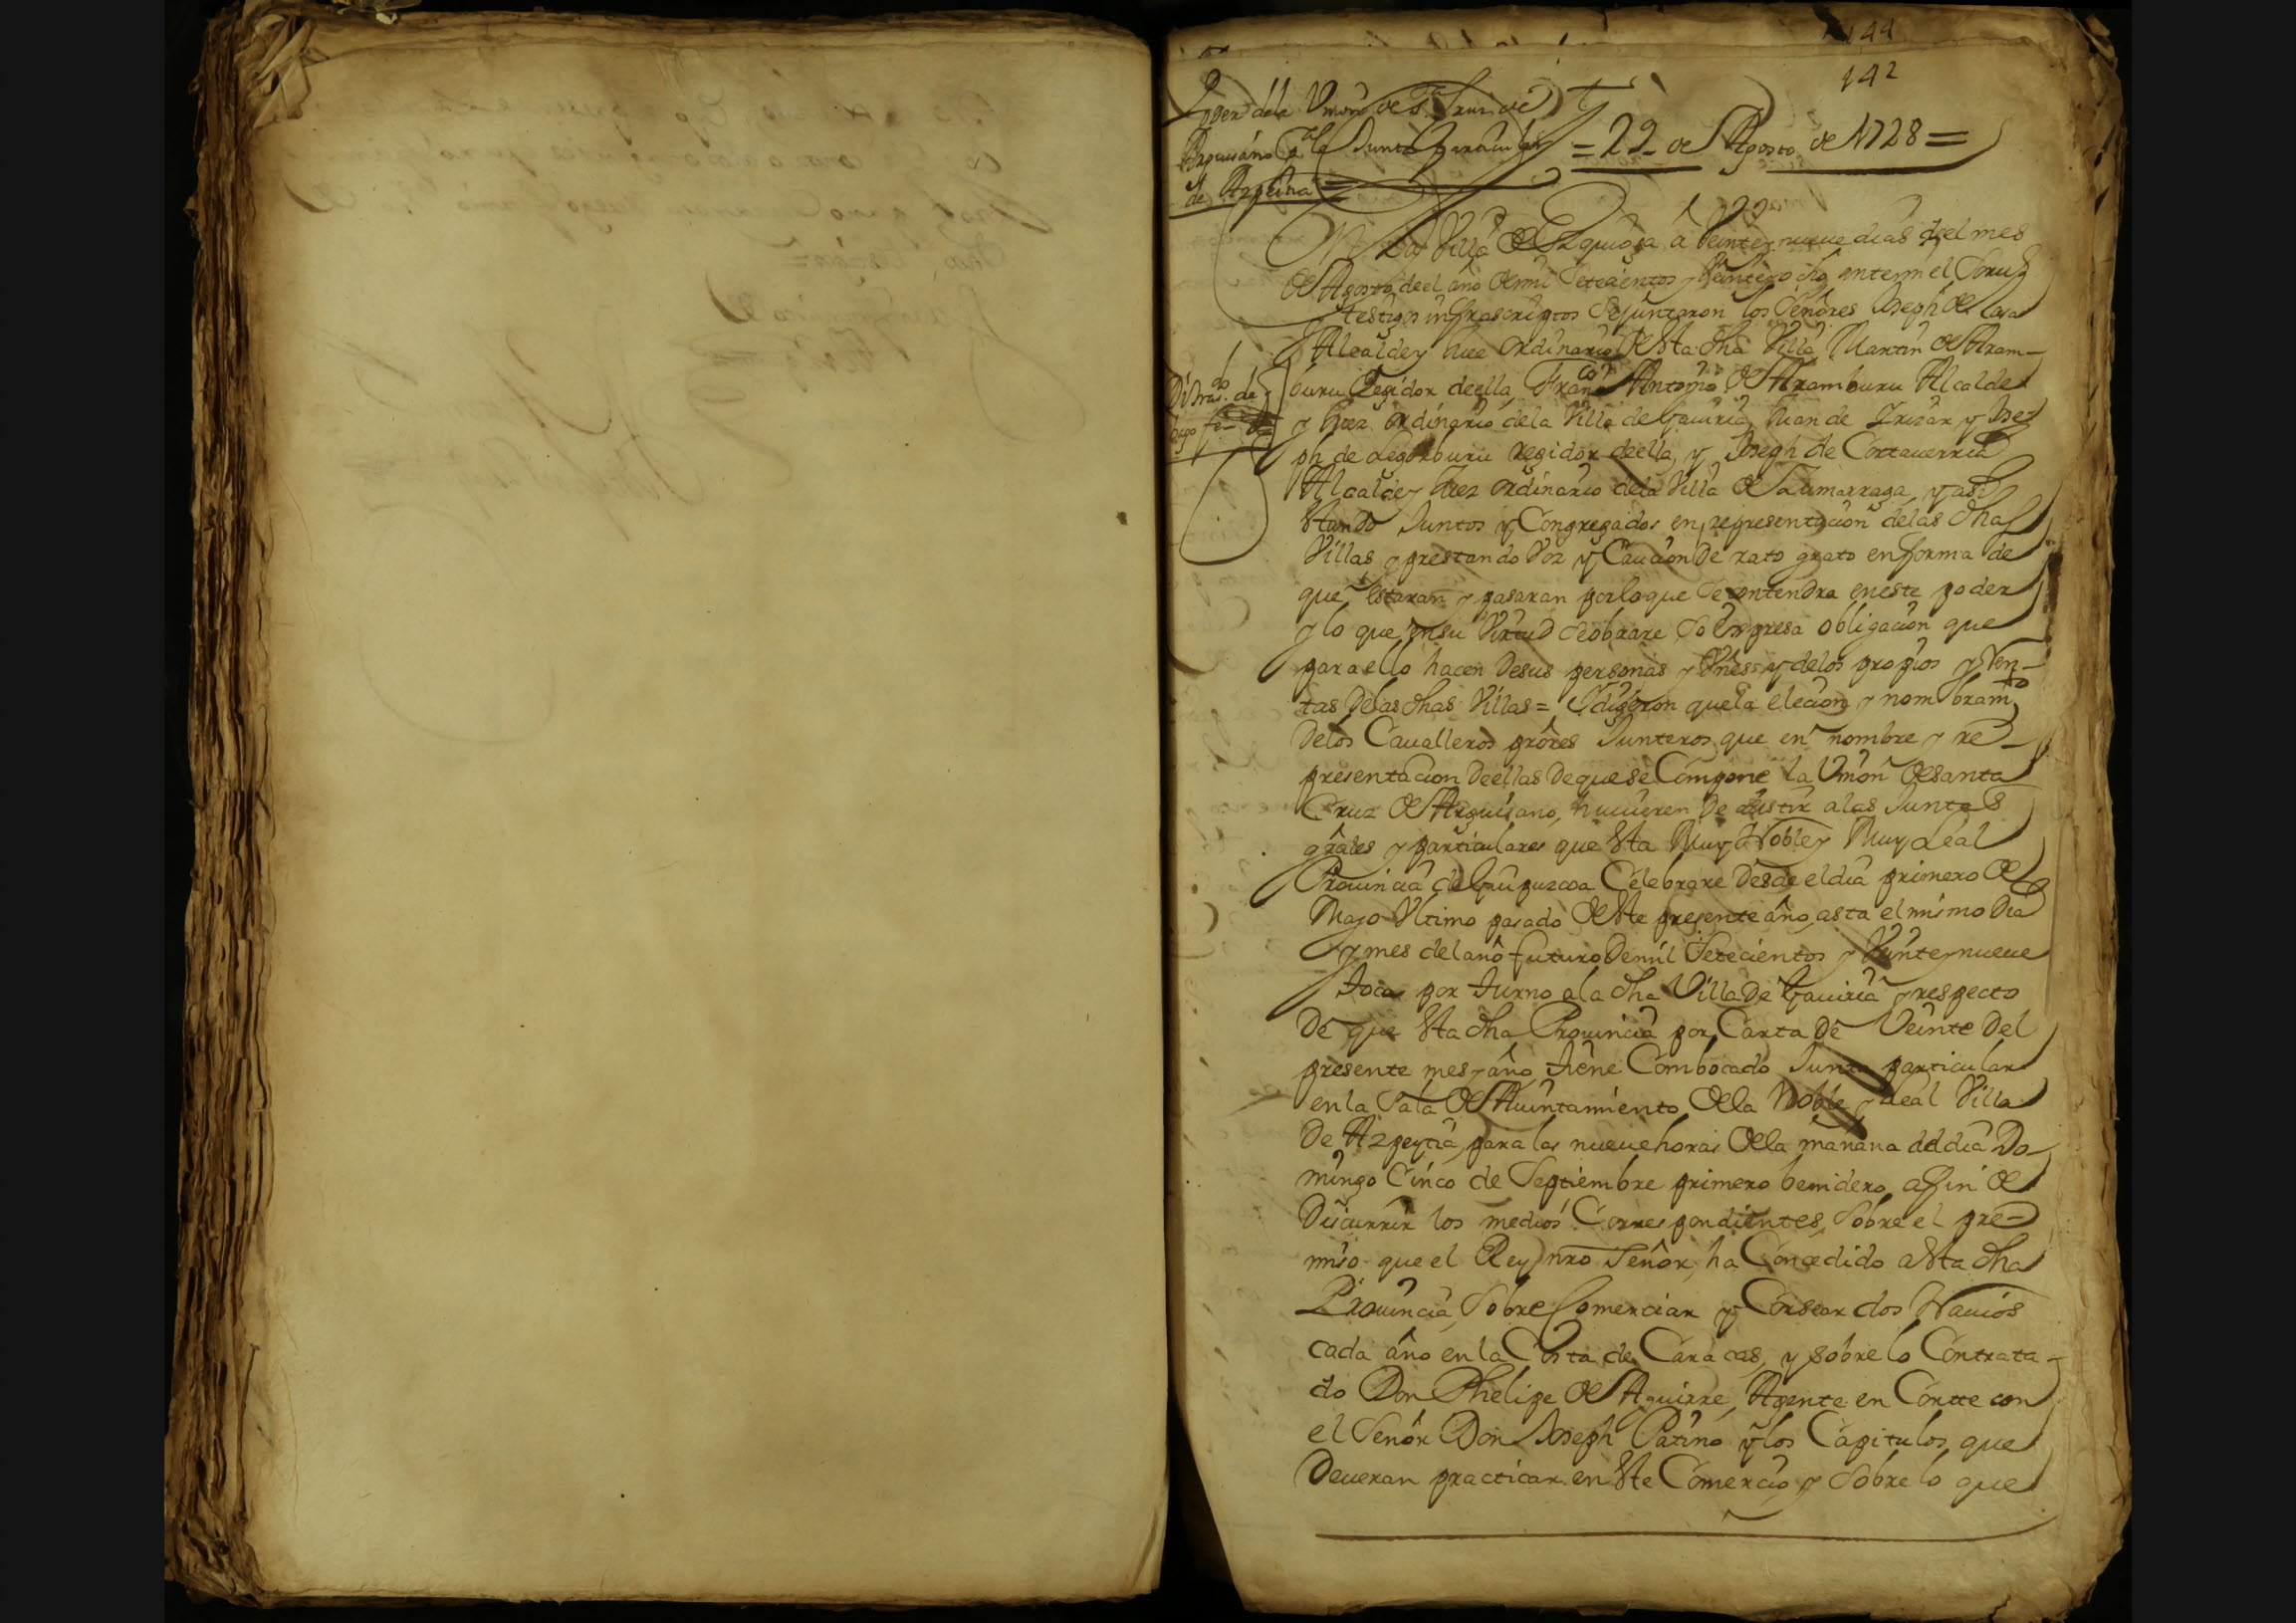 144
142
Poder dela Vnion de S.ta Cruz de
Arguisano p.a la Junta Particular
de Azpeitia =
= 29 de Agosto de 1728 =
En La Villa de Ezquioga â Veinte y nueve dias del mes
de Agosto de el año de mil Setecientos y Veinte y ocho, ante mi el
y testigos infrascriptos Se juntaron los Señores Joseph de
Alcalde y Juez ordinario de esta dha Villa, Martin de Aram-
buru Regidor de ella, Fran.co Antonio de Aramburu Alcalde
y Juez ordinario de la Villa de Gauiria, Juan de Yrizar y Jose
ph de Legorburu regidor de ella, y Joseph de Cortauerria
Alcalde y Juez ordinario dela Villa de Zumarraga, y asi
estando Juntos y Congregados en representacion delas dhas
Villas, y prestando Voz y Caucion De rato grato en forma de
que estaran y pasaran por lo que Se contendra en este poder
y lo que en su Virtud Se obrare, So expresa obligacion que
para ello hacen De sus personas y Vnes, y delos propios y Ren-
tas Delas dhas Villas = Y digeron que la elecion y nombram.to
Delos Caualleros prôres Junteros que en nombre y re-
presentacion De ellas De que se Compone la Vnion de Santa
Cruz de Arguisano, huuieren De asistir a las Juntas
grâles y particulares que esta Muy Noble y Muy Leal
Prouincia de Guipuzcoa Celebrare Desde el dia primero de
Mayo Vltimo pasado de este presente año, asta el mismo Dia
y mes del año futuro De mil Setecientos y Veinte y nueue
toca por turno a la dha Villa De Gauiria y respecto
De que esta dha Prouincia por Carta De Veinte Del
presente mes y año, tiene Combocado Junta particular
en la Sala de Aiuntamiento de la Noble y Leal Villa
De Azpeytia, para las nueue horas de la mañana del dia Do-
mingo Cinco de Septiembre primero benidero, a fin de
Discurrir los medios Correspondientes, Sobre el pre-
miso que el Rey nro Señor, ha Concedido a esta dha
Prouincia, Sobre Comerciar y Corsear dos Nauios
cada año en la Costa de Caracas, y sobre lo Contrata-
do Don Phelipe de Aguirre, Agente en Cortte con
el Señor Don Joseph Patiño y los Capitulos que
Deueran practicar en este Comercio, y Sobre lo que